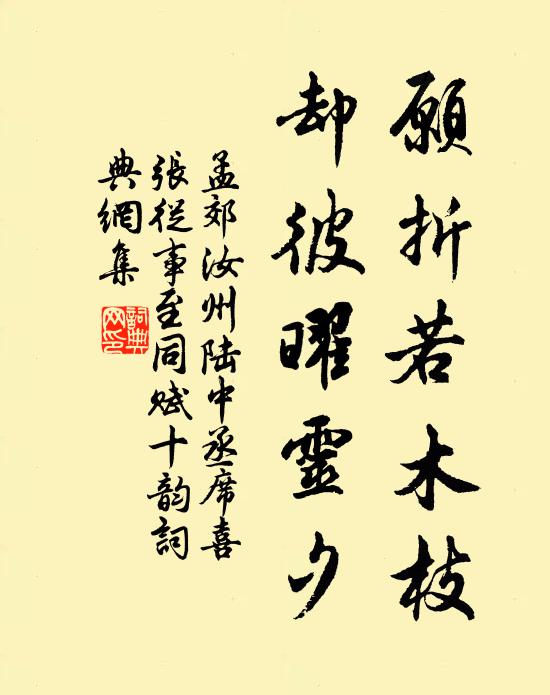 願折若木枝
却彼曜靈夕
孟郊汝州陸中丞席喜
張從事至同賦十韵詞
典網集
詞典网印